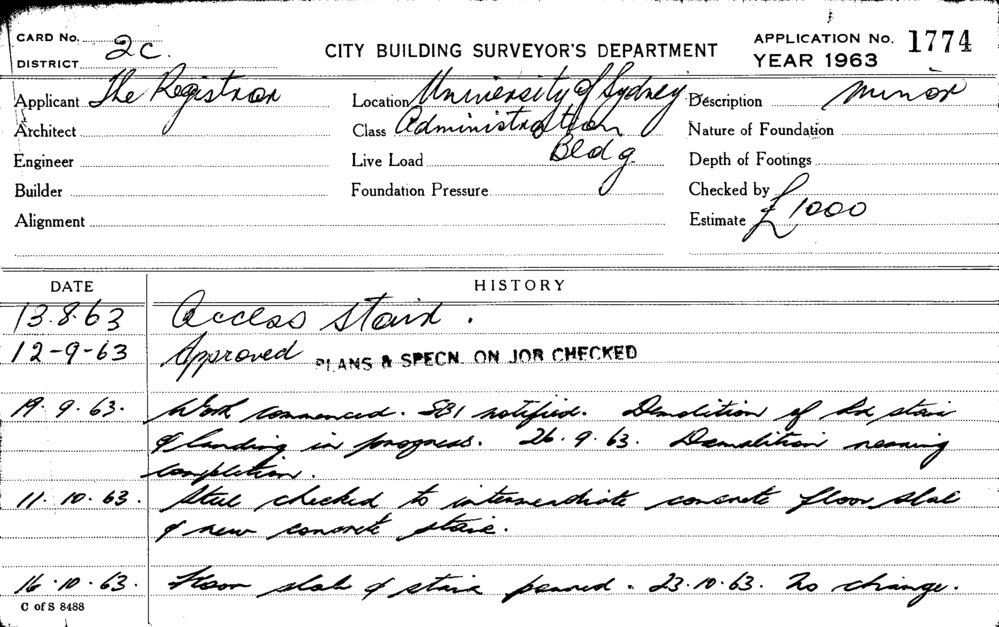 CARD No. 2c.
DISTRICT
CITY BUILDING SURVEYOR'S DEPARTMENT
APPLICATION No. 1774
YEAR 1963
Applicant The Registrar
Location University of Sydney
Description Minor
Architect
Class Administration
Nature of Foundation
Engineer
Live Load Bldg.
Depth of Footings
Builder
Foundation Pressure
Checked by
Alignment
Estimate £1000
DATE HISTORY
13.8.63 Access Stair.
12-9-63 Approved PLANS & SPECN. ON JOB CHECKED
19.9.63. Work commenced. SBI notified. Demolition of stair
& landing in progress. 26.9.63. Demolition nearing
completion.
11.10.63. Steel checked to intermediate concrete floor slab
& new concrete stair.
16.10.63. Floor slab & stairs poured. 23.10.63. No change.
C of S 8488